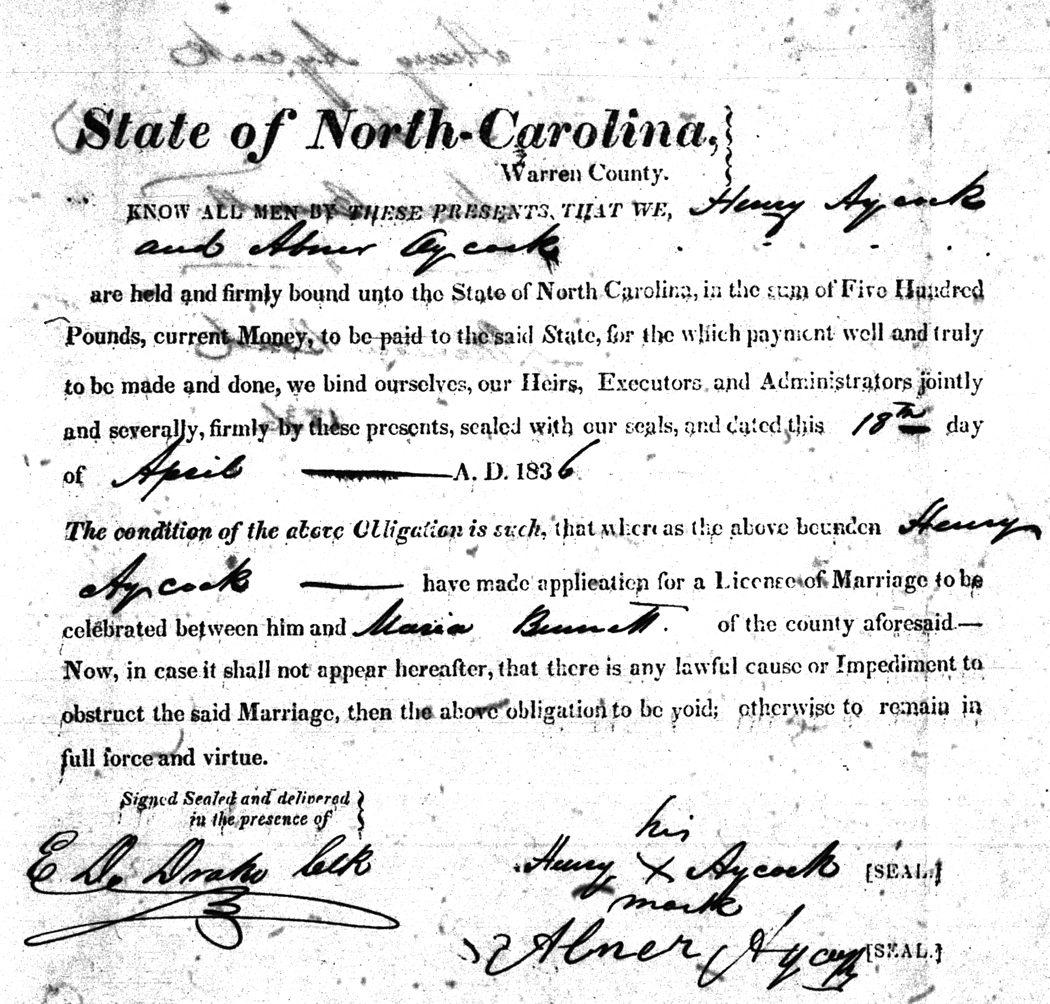 State of North-Carolina,
Warren County.
KNOW ALL MEN BY THESE PRESENTS, THAT WE, Henry Aycock
and Abner Aycock
are held and firmly bound unto the State of North Carolina, in the sum of Five Hundred
Pounds, current Money, to be paid to the said State, for the which payment well and truly
to be made and done, we bind ourselves, our Heirs, Executors and Administrators jointly
and severally, firmly by these presents, sealed with our seals, and dated this 18th day
of April A. D. 1836
The condition of the above Obligation is such, that whereas the above bounden Henry
Aycock have made application for a License of Marriage to be
celebrated between him and Maria Bennett. of the county aforesaid.—
Now, in case it shall not appear hereafter, that there is any lawful cause or Impediment to
obstruct the said Marriage, then the above obligation to be void; otherwise to remain in
full force and virtue.
Signed Sealed and delivered
in the presence of
E D. Drake Clk
his
Henry X Aycock [SEAL.]
mark
Abner Aycock [SEAL.]